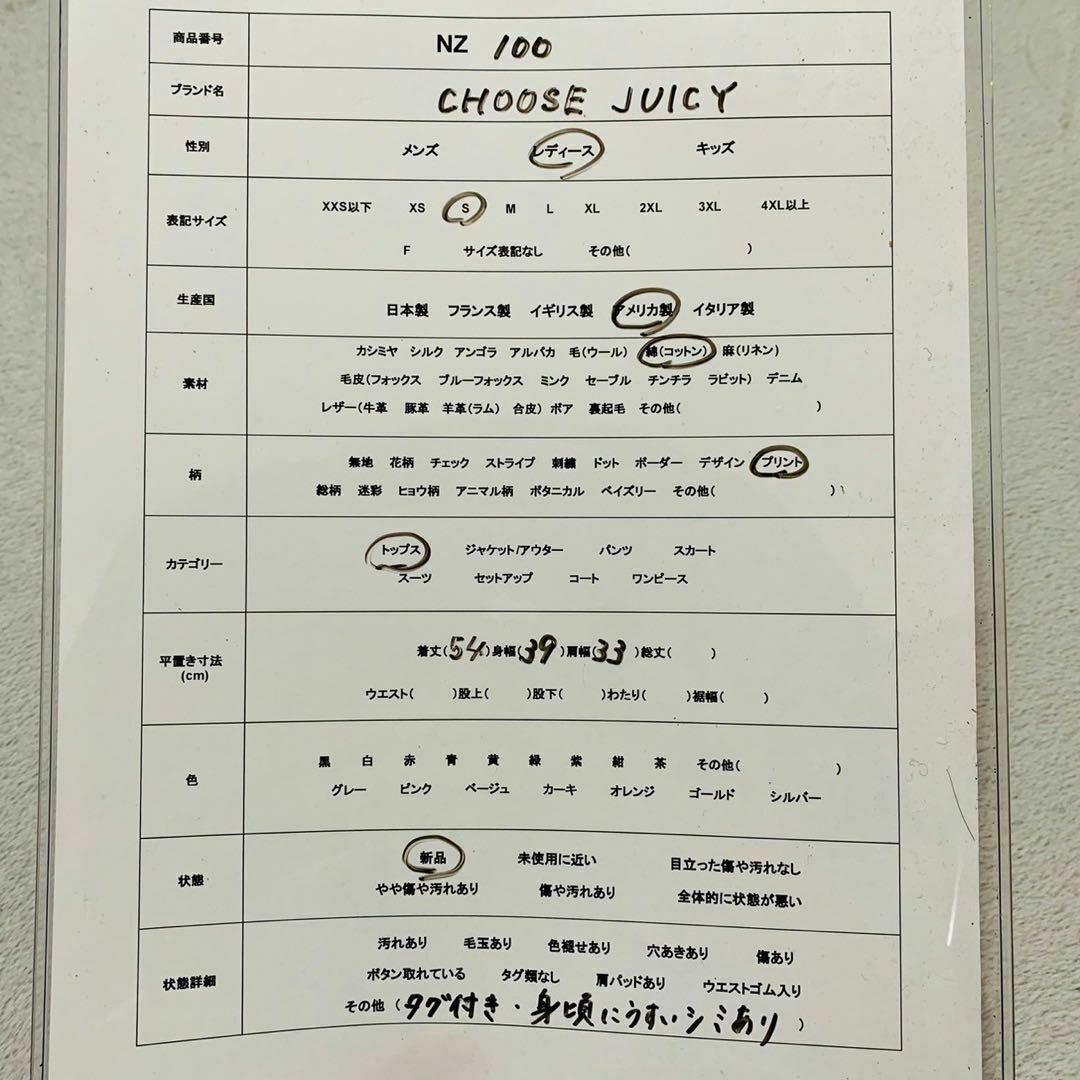 商品番号 NZ 100
ブランド名 CHOOSE JUICY
性別 メンズ レディース キッズ
表記サイズ XXS以下 XS S M L XL 2XL 3XL 4XL以上
F サイズ表記なし その他( )
生産国 日本製 フランス製 イギリス製 アメリカ製 イタリア製
素材 カシミヤ シルク アンゴラ アルパカ 毛(ウール) 綿(コットン) 麻(リネン)
毛皮(フォックス ブルーフォックス ミンク セーブル チンチラ ラビット) デニム
レザー(牛革 豚革 羊革(ラム) 合皮) ボア 裏起毛 その他( )
柄 無地 花柄 チェック ストライプ 刺繍 ドット ボーダー デザイン プリント
総柄 迷彩 ヒョウ柄 アニマル柄 ボタニカル ペイズリー その他( )
カテゴリー トップス ジャケット/アウター パンツ スカート
スーツ セットアップ コート ワンピース
平置き寸法
(cm)
着丈(54)身幅(39)肩幅(33)総丈( )
ウエスト( )股上( )股下( )わたり( )裾幅( )
色 黒 白 赤 青 黄 緑 紫 紺 茶 その他( )
グレー ピンク ベージュ カーキ オレンジ ゴールド シルバー
状態 新品 未使用に近い 目立った傷や汚れなし
やや傷や汚れあり 傷や汚れあり 全体的に状態が悪い
状態詳細 汚れあり 毛玉あり 色褪せあり 穴あきあり 傷あり
ボタン取れている タグ類なし 肩パッドあり ウエストゴム入り
その他 (タグ付き・身頃にうすいシミあり)